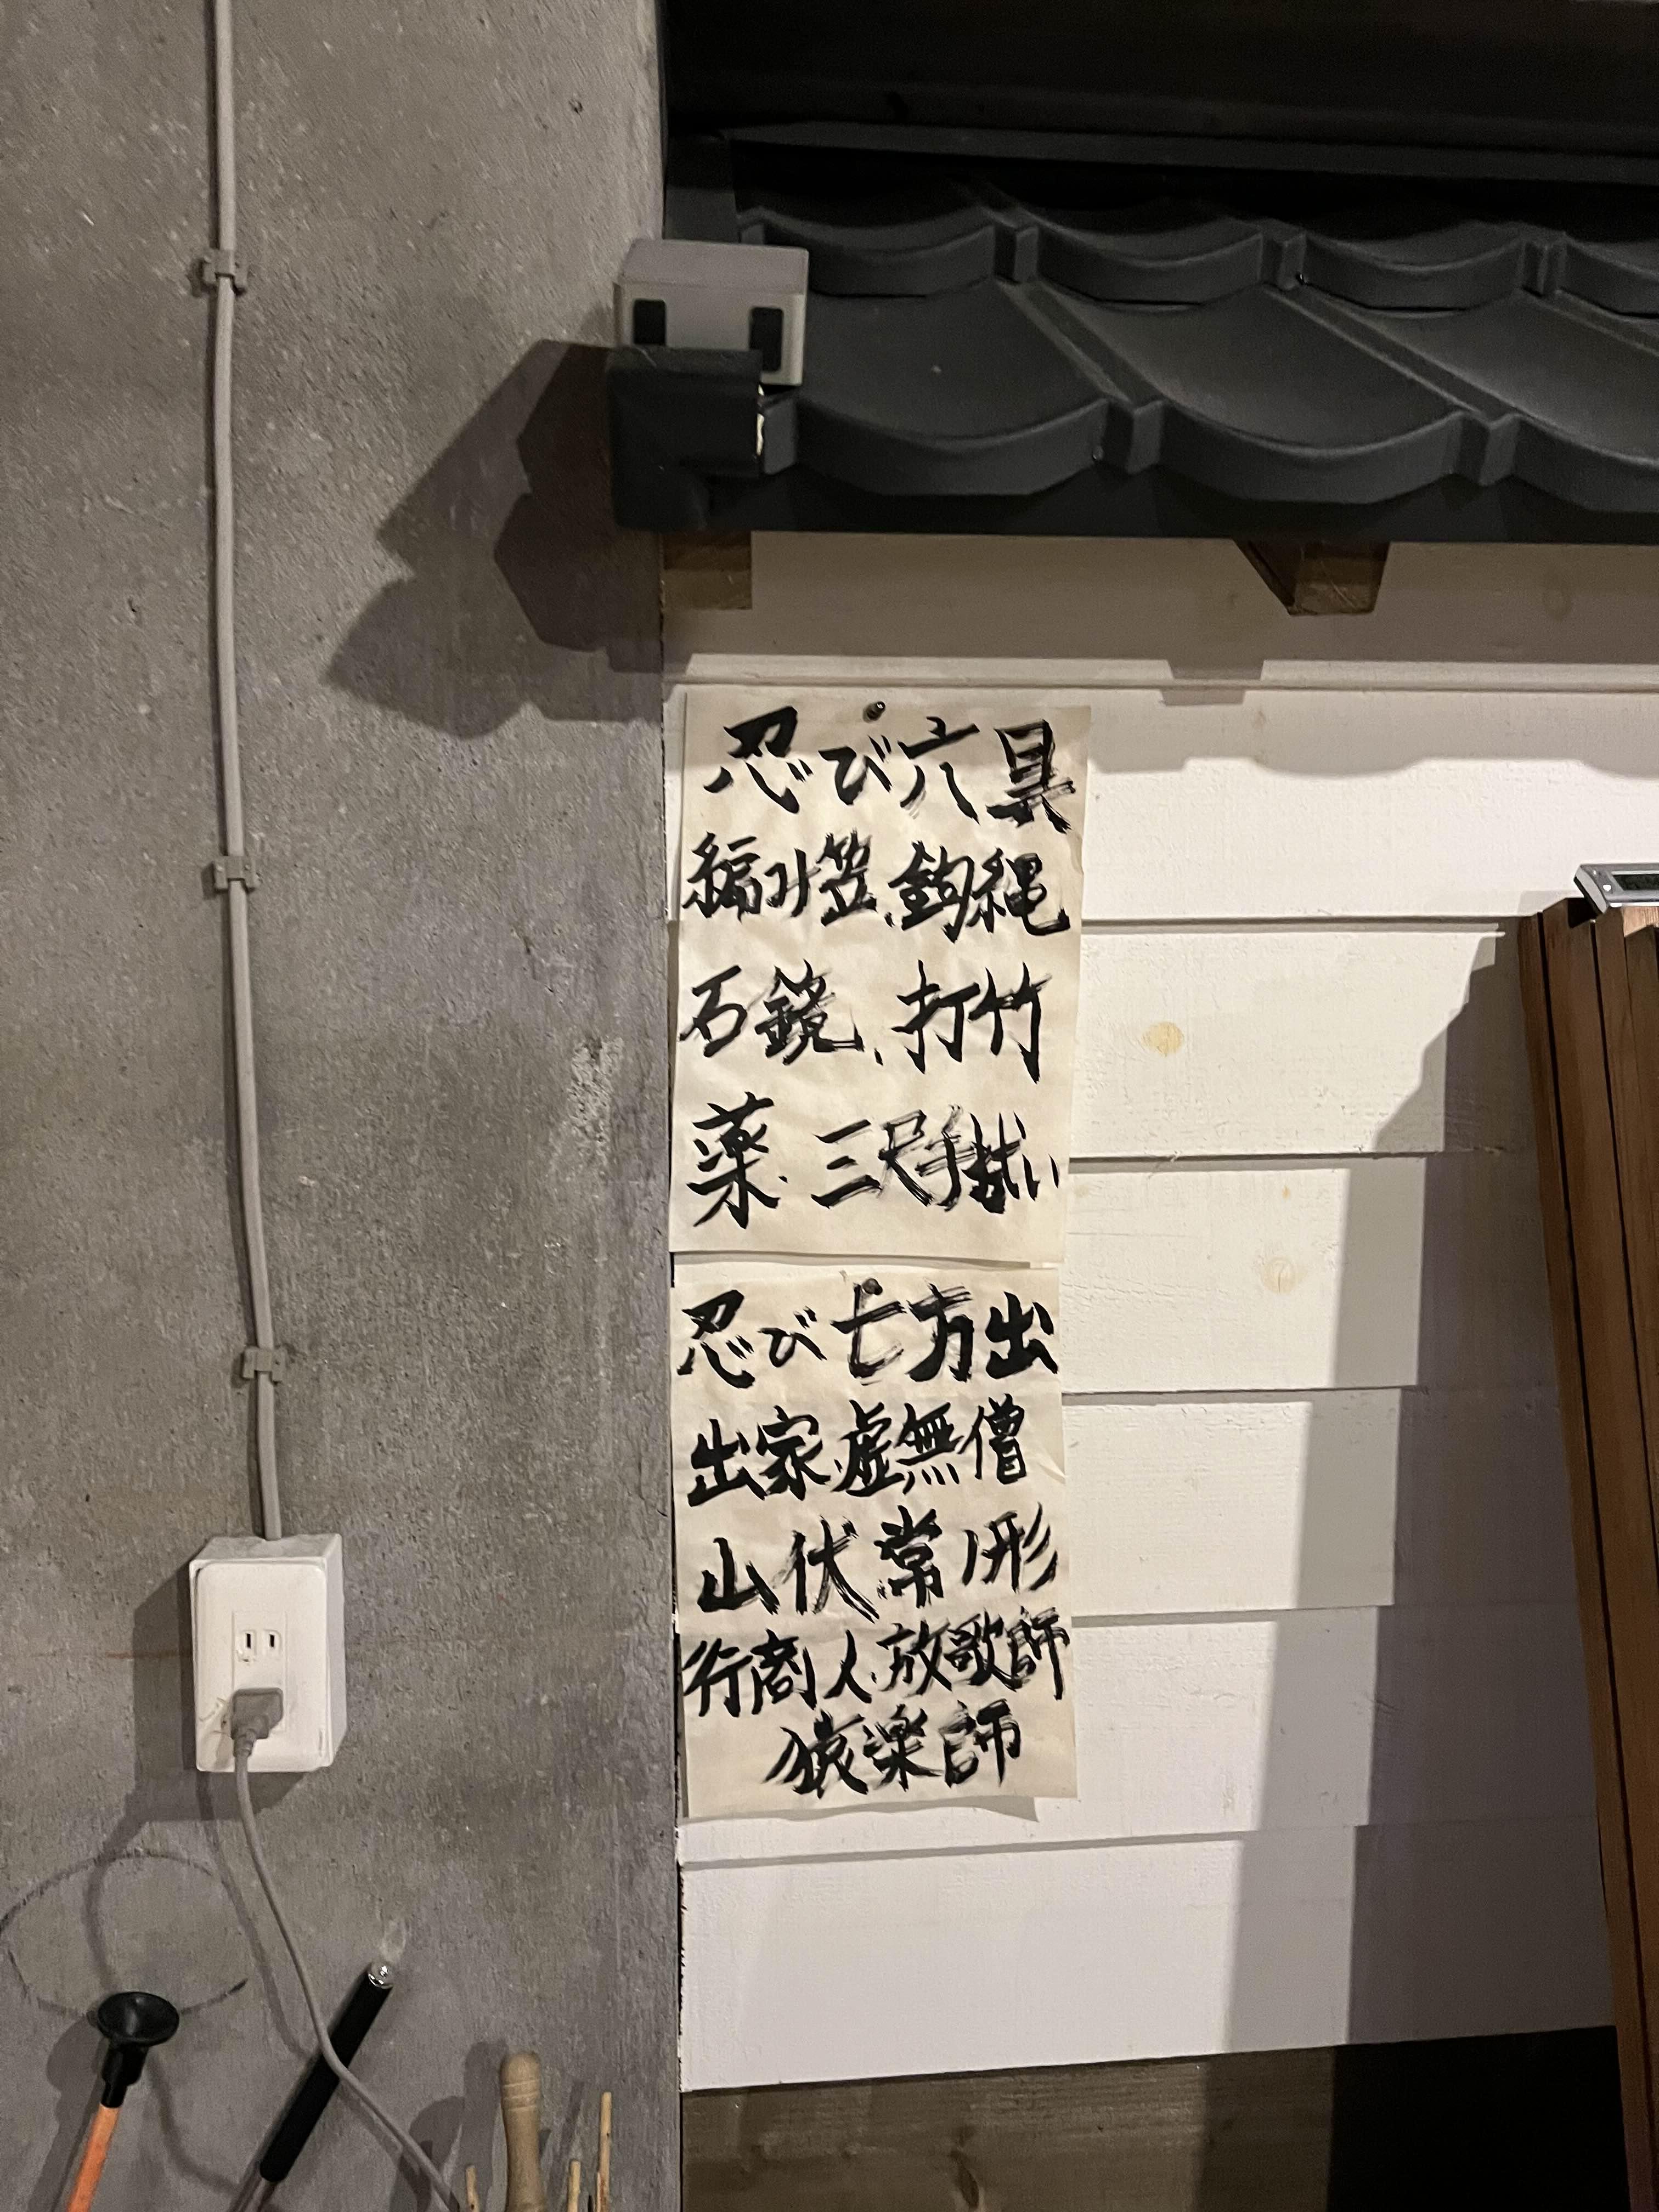 忍び六具
編み笠、鈎縄
石鏡、打竹
薬、三尺手拭い
忍び七方出
出家、虚無僧
山伏、常形
行商人、放歌師
猿楽師